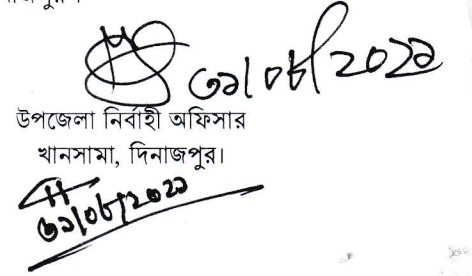 ৩১/০৮/২০২১
উপজেলা নির্বাহী অফিসার
খানসামা, দিনাজপুর।
৩১/০৮/২০২১